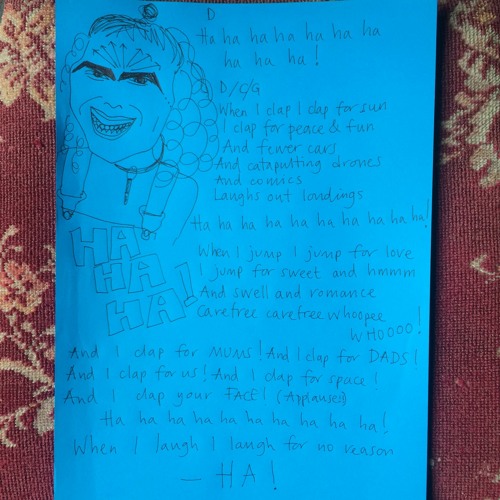 D
Ha ha ha ha ha ha ha
ha ha ha!
D/C/G
When I clap I clap for sun
I clap for peace & fun
And fewer cars
And catapulting drones
And comics
Laughs out loudings
Ha ha ha ha ha ha ha ha ha ha!
When I jump I jump for love
I jump for sweet and hmmm
And swell and romance
Carefree carefree whoopee
WHOOOO!
HA
HA
HA!
And I clap for MUMS! And I clap for DADS!
And I clap for us! And I clap for space!
And I clap your FACE! (Applauses)
Ha ha ha ha ha ha ha ha ha ha!
When I laugh I laugh for no reason
— HA!